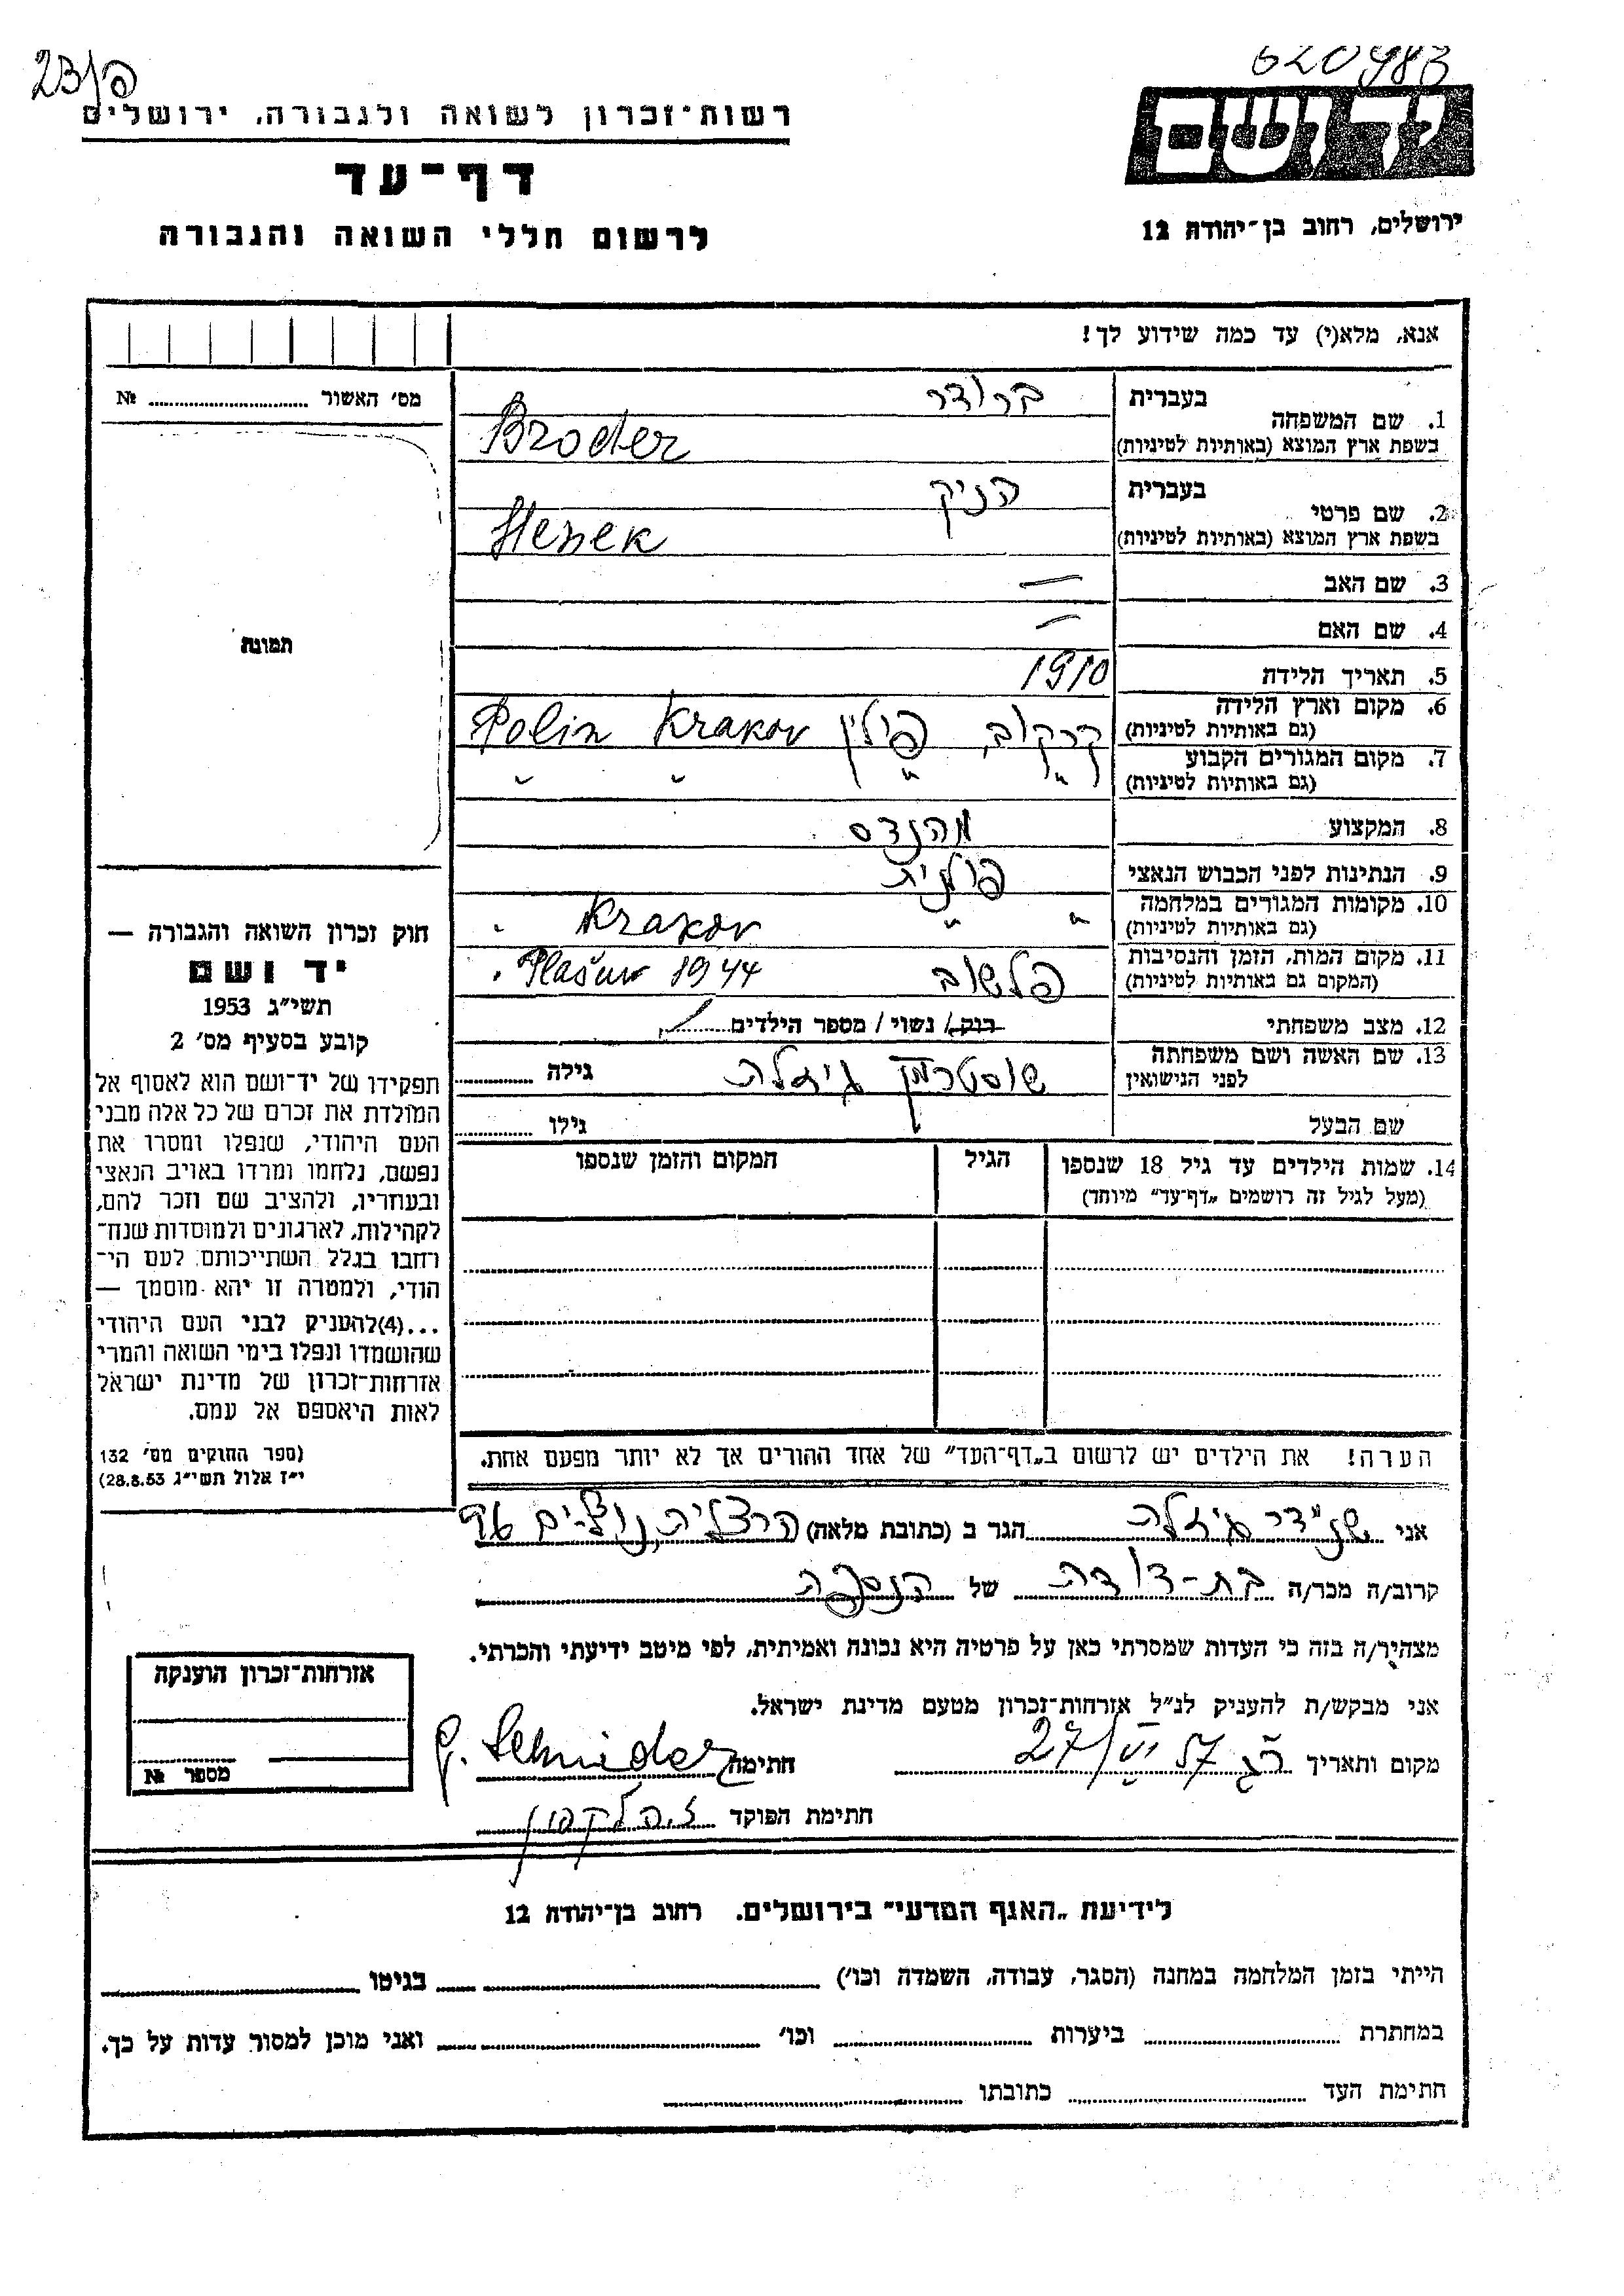 23/פ
620983
רשות־זכרון לשואה ולגבורה, ירושלים
יד ושם
דף־עד
לרשום חללי השואה והגבורה
ירושלים, רחוב בן־יהודה 12
אנא, מלא(י) עד כמה שידוע לך!
מס׳ האשור № ........
1. שם המשפחה
בעברית ברודר
בשפת ארץ המוצא (באותיות לטיניות) Broder
2. שם פרטי
בעברית הניק
בשפת ארץ המוצא (באותיות לטיניות) Henek
3. שם האב —
4. שם האם —
5. תאריך הלידה 1910
6. מקום וארץ הלידה (גם באותיות לטיניות) קרקוב, פולין Krakov Polin
7. מקום המגורים הקבוע (גם באותיות לטיניות) " " " "
8. המקצוע מהנדס
9. הנתינות לפני הכבוש הנאצי פולנית
10. מקומות המגורים במלחמה (גם באותיות לטיניות) " " Krakov
11. מקום המות, הזמן והנסיבות (המקום גם באותיות לטיניות) פלשוב Plašuv 1944
12. מצב משפחתי רוק / נשוי / מספר הילדים
13. שם האשה ושם משפחתה לפני הנישואין גיזלה גילה
שם הבעל גילו
14. שמות הילדים עד גיל 18 שנספו
(מעל לגיל זה רושמים „דף־עד״ מיוחד)
הגיל
המקום והזמן שנספו
תמונה
חוק זכרון השואה והגבורה —
יד ושם
תשי״ג 1953
קובע בסעיף מס׳ 2
תפקידו של יד־ושם הוא לאסוף אל
המולדת את זכרם של כל אלה מבני
העם היהודי, שנפלו ומסרו את
נפשם, נלחמו ומרדו באויב הנאצי
ובעוזריו, ולהציב שם וזכר להם,
לקהילות, לארגונים ולמוסדות שנח־
רבו בגלל השתייכותם לעם הי־
הודי, ולמטרה זו יהא מוסמך —
...(4)להעניק לבני העם היהודי
שהושמדו ונפלו בימי השואה והמרי
אזרחות־זכרון של מדינת ישראל
לאות היאספם אל עמם.
(ספר החוקים מס׳ 132
י״ז אלול תשי״ג 28.8.53)
הערה! את הילדים יש לרשום ב„דף־העד״ של אחד ההורים אך לא יותר מפעם אחת.
אני שניידר גיזלה הגר ב (כתובת מלאה) הרצליה,
קרוב/ה מכר/ה בת-דודה של הנספה
מצהיר/ה בזה כי העדות שמסרתי כאן על פרטיה היא נכונה ואמיתית, לפי מיטב ידיעתי והכרתי.
אני מבקש/ת להעניק לנ״ל אזרחות־זכרון מטעם מדינת ישראל.
מקום ותאריך 27/VI 57 חתימה G. Schnider
חתימת הפוקד
אזרחות־זכרון הוענקה
מספר №
לידיעת „האגף המדעי״ בירושלים. רחוב בן־יהודה 12
הייתי בזמן המלחמה במחנה (הסגר, עבודה, השמדה וכו׳) ........ בגיטו ........
במחתרת ........ ביערות ........ וכו׳ ........ ואני מוכן למסור עדות על כך.
חתימת העד ........ כתובתו ........